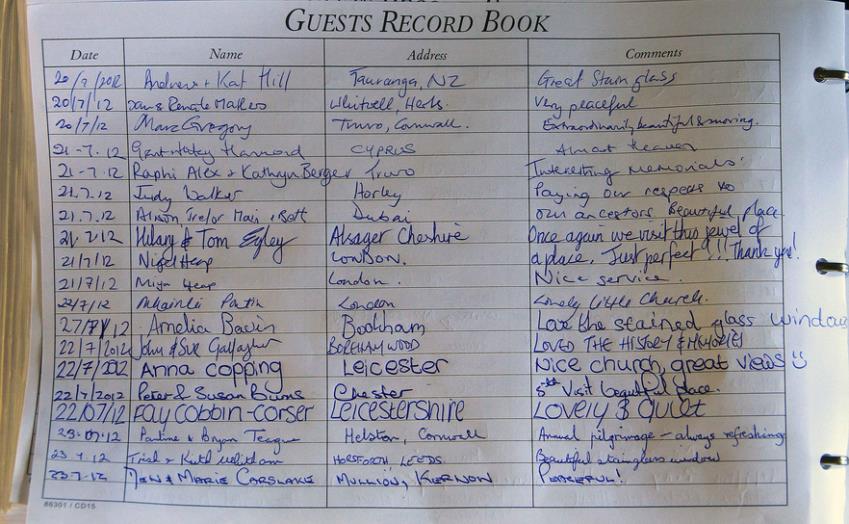 GUESTS RECORD BOOK
Date Name Address Comments
20/7/2012 Andrew + Kat Hill Tauranga, NZ Great Stain glass
20/7/12 Renate Whitwell, Herts. Very peaceful
20/7/12 Marc Gregory Truro, Cornwall. Extraordinarily beautiful & moving.
21-7.12 Hannord CYPRUS Almost Heaven
21-7.12 Raphi Alex + Kathryn Berger Truro Interesting Memorials!
21.7.12 Judy Walker Horley Paying our respects to
21.7.12 Dubai our ancestors. Beautiful place
21.7.12 Hilary & Tom Egley Alsager Cheshire Once again we visit this jewel of
21/7/12 Nigel Heap LONDON. a place, Just perfect!!! Thank you!
21/7/12 Heap London. Nice service.
22/7/12 London Lovely Little Church.
27/7/12 Amelia Bavin Bookham Love the stained glass window
22/7/2012 John & Sue Gallagher BOREHAMWOOD LOVED THE HISTORY & MEMORIES
22/7/2012 Anna Copping Leicester Nice church, great views
22/7/2012 Peter & Susan Burns Chester 5th Visit beautiful place.
22/07/12 Fay Cobbin-Corser Leicestershire LOVELY & QUIET
23.07.12 Pauline & Bryan Teague Helston, Cornwall Annual pilgrimage - always refreshing
23.7.12 HORSFORTH LEEDS Beautiful stainglass window
23.7.12 JON & MARIE CARSLAKE MULLION, KERNOW PEACEFUL!
86301 / CD15